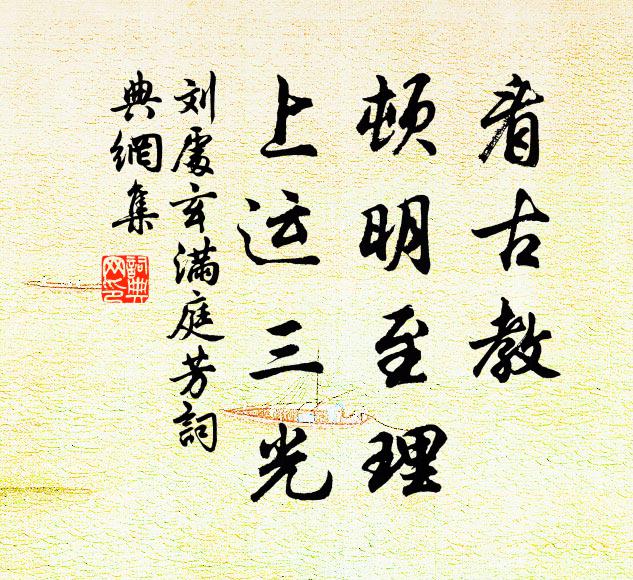 看古教
顿明至理
上运三光
刘處玄满庭芳詞
典網集
詞典网